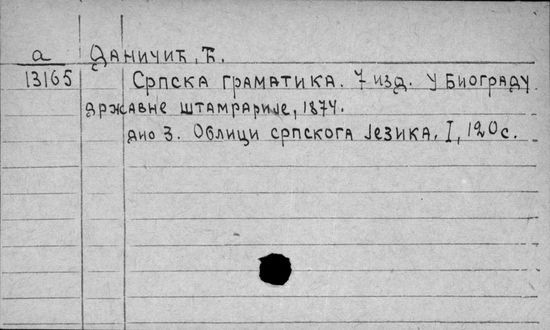 а Даничић, Ђ.
13165 Српска граматика. 7 изд. У Биограду
државне штамрарије, 1874.
дио 3. Облици српскога језика. I, 120 с.